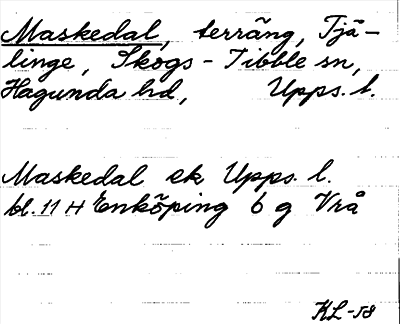 Maskedal, terräng, Tjä-
linge, Skogs-Tibble sn,
Hagunda hd, Upps. l.
Maskedal ek Upps. l.
bl. 11 H Enköping 6 g Vrå
KL-58